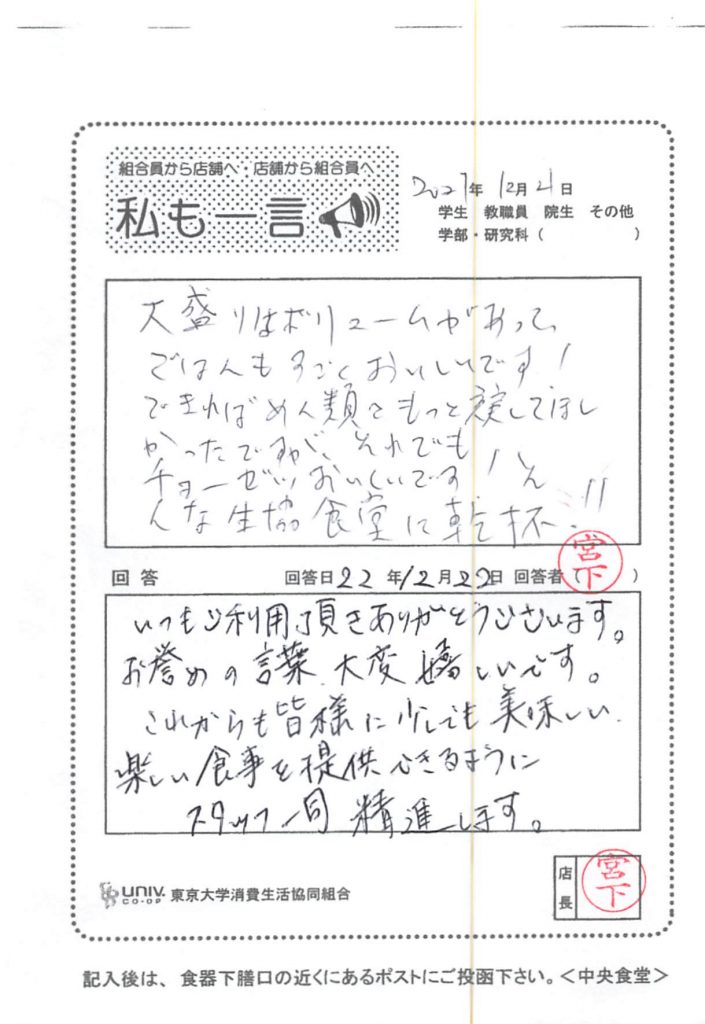 組合員から店舗へ・店舗から組合員へ
私も一言
年 12月21日
学生 教職員 院生 その他
学部・研究科( )
大盛りはボリュームがあって、
ごはんもすごくおいしいです!
できればめん類をもっと戻してほし
かったですが、それでも
チョーゼツおいしいです!!
んな生協食堂に乾杯!!
回答 回答日22年12月22日 回答者(宮下)
いつもご利用頂きありがとうございます。
お誉めの言葉、大変嬉しいです。
これからも皆様に少しでも美味しい、
楽しい食事を提供できるように
スタッフ一同 精進します。
univ.
CO-OP 東京大学消費生活協同組合
店長 宮下
記入後は、食器下膳口の近くにあるポストにご投函下さい。<中央食堂>